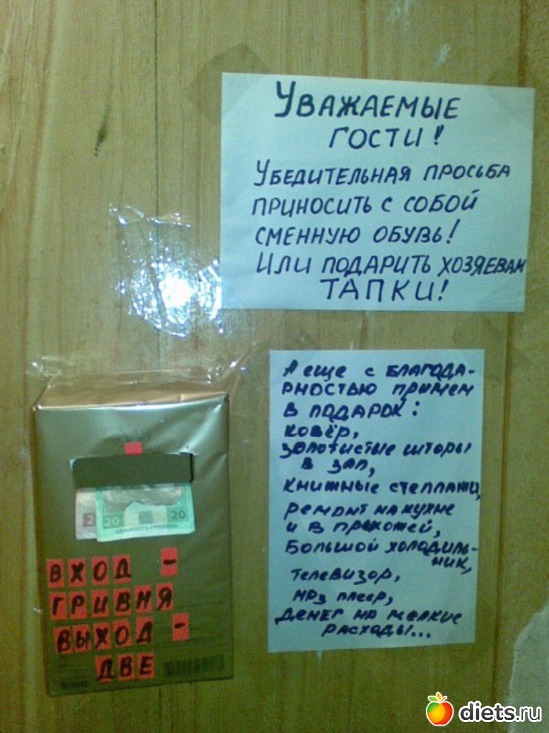 УВАЖАЕМЫЕ
ГОСТИ!
УБЕДИТЕЛЬНАЯ ПРОСЬБА
ПРИНОСИТЬ С СОБОЙ
СМЕННУЮ ОБУВЬ!
ИЛИ ПОДАРИТЬ ХОЗЯЕВАМ
ТАПКИ!
А ЕЩЕ С БЛАГОДА-
РНОСТЬЮ ПРИМЕМ
В ПОДАРОК:
КОВЁР,
ЗОЛОТИСТЫЕ ШТОРЫ
В ЗАЛ,
КНИЖНЫЕ СТЕЛЛАЖИ,
РЕМОНТ НА КУХНЕ
И В ПРИХОЖЕЙ,
БОЛЬШОЙ ХОЛОДИЛЬ-
НИК,
ТЕЛЕВИЗОР,
MP3 ПЛЕЕР,
ДЕНЕГ НА МЕЛКИЕ
РАСХОДЫ...
2 20 20
ВХОД -
ГРИВНЯ
ВЫХОД -
ДВЕ
diets.ru